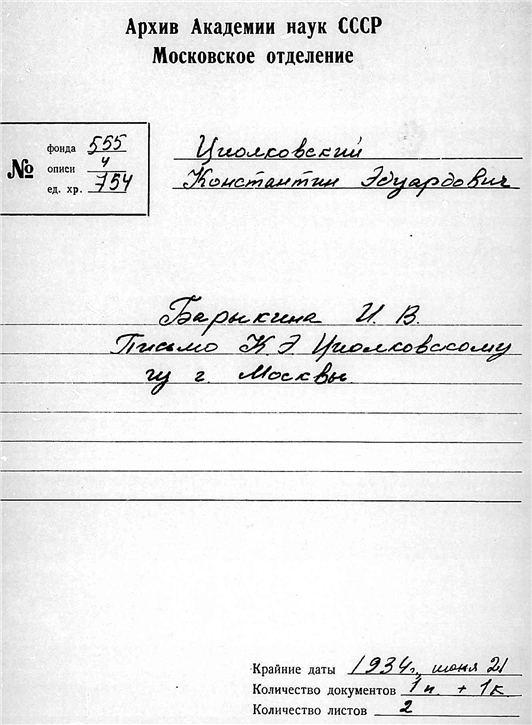 Архив Академии наук СССР
Московское отделение
№
фонда 555
описи 4
ед. хр. 754
Циолковский
Константин Эдуардович
Барыкина И. В.
Письмо К. Э. Циолковскому
из г. Москвы.
Крайние даты 1934г., июня 21
Количество документов 1п. + 1к.
Количество листов 2